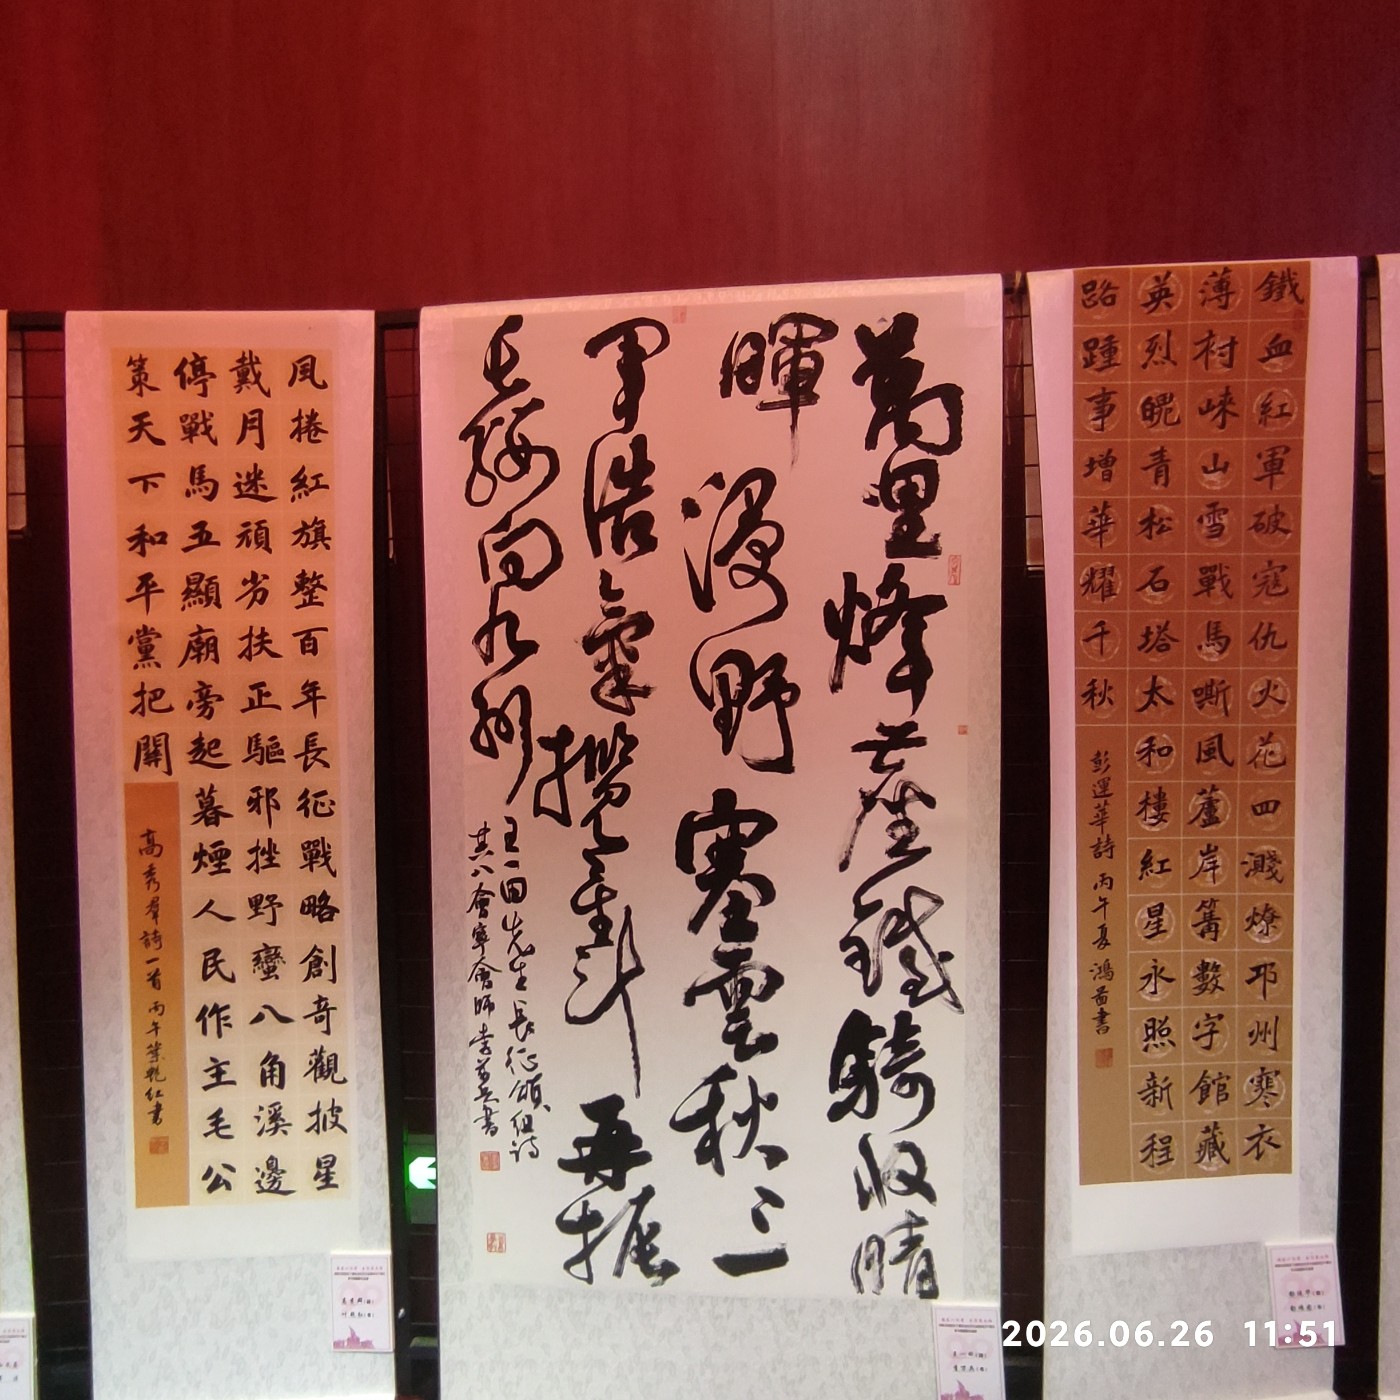 鐵血紅軍破寇仇火花四濺燎邛州寒衣
薄村崍山雪戰馬嘶風蘆岸篝數字館藏
英烈青松石塔太和樓紅星永照新程
路踵事增華耀千秋
彭運華詩丙午夏鴻書
萬里烽臺鐵騎收晴
暉漫野塞雲秋三
軍浩氣攬星斗再振
長纓向九州
王一先生長征頌組詩
其八會寧會師李兵書
風捲紅旗整百年長征戰略創奇觀披星
戴月迷頑劣扶正驅邪挫野蠻八角溪邊
停戰馬五顯廟旁起暮煙人民作主毛公
策天下和平黨把關
高秀羣詩一首丙午葉艷紅書
2026.06.26 11:51